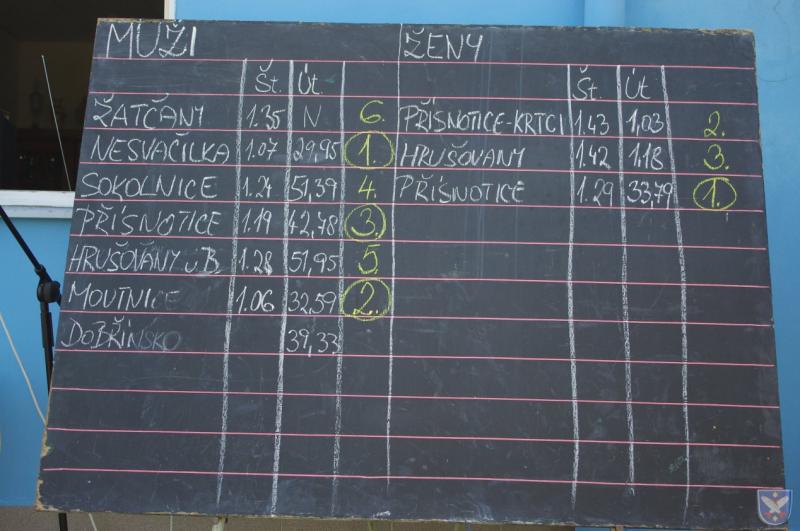 MUŽI ŽENY
Št. Út. Št. Út
ŽATČANY 1.35 N 6. PŘÍSNOTICE-KRTCI 1.43 1,03 2.
NESVAČILKA 1.07 29,95 1. HRUŠOVANY 1.42 1,18 3.
SOKOLNICE 1.24 51,39 4. PŘÍSNOTICE 1.29 33,79 1.
PŘÍSNOTICE 1.19 42,78 3.
HRUŠOVANY u.B. 1.28 51,95 5.
MOUTNICE 1.06 32,59 2.
DOBŘÍNSKO 39,33